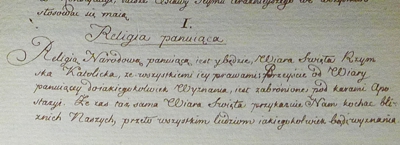 stosować się maią
I.
Religia panuiąca
Religią Narodową panuiącą iest y będzie, Wiara Swięta Rzym
ska Katolicka, ze wszystkiemi iey prawami; Przeyście od Wiary
panuiącey do iakiegokolwiek Wyznania, iest zabronione pod karami Apo
stazyi. Ze zaś taż sama Wiara Swięta przykazuie Nam kochać bli
znich Naszych, przeto wszystkim ludziom iakiegokolwiek bądź wyznania